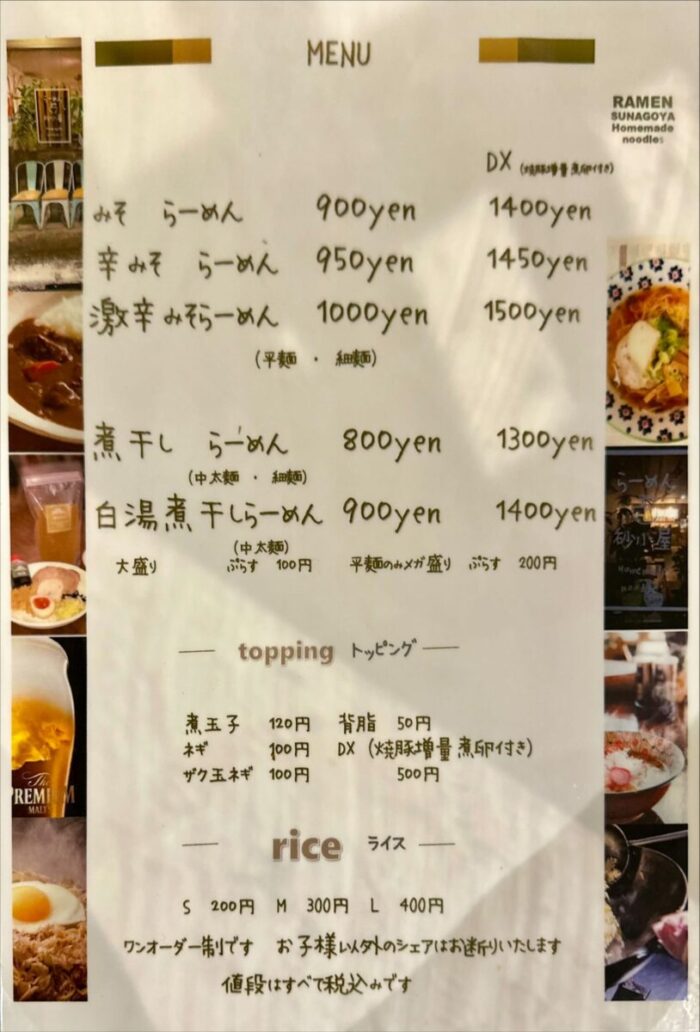 MENU
RAMEN
SUNAGOYA
Homemade
noodles
DX (焼豚増量煮卵付き)
みそ らーめん 900yen 1400yen
辛みそ らーめん 950yen 1450yen
激辛みそらーめん 1000yen 1500yen
(平麺・細麺)
煮干し らーめん 800yen 1300yen
(中太麺・細麺)
白湯煮干しらーめん 900yen 1400yen
(中太麺)
大盛り ぷらす 100円 平麺のみメガ盛り ぷらす 200円
topping トッピング
煮玉子 120円 背脂 50円
ネギ 100円 DX (焼豚増量煮卵付き)
ザク玉ネギ 100円 500円
rice ライス
S 200円 M 300円 L 400円
ワンオーダー制です お子様以外のシェアはお断りいたします
値段はすべて税込みです
らーめん
砂小屋
The
PREMIUM
MALT'S